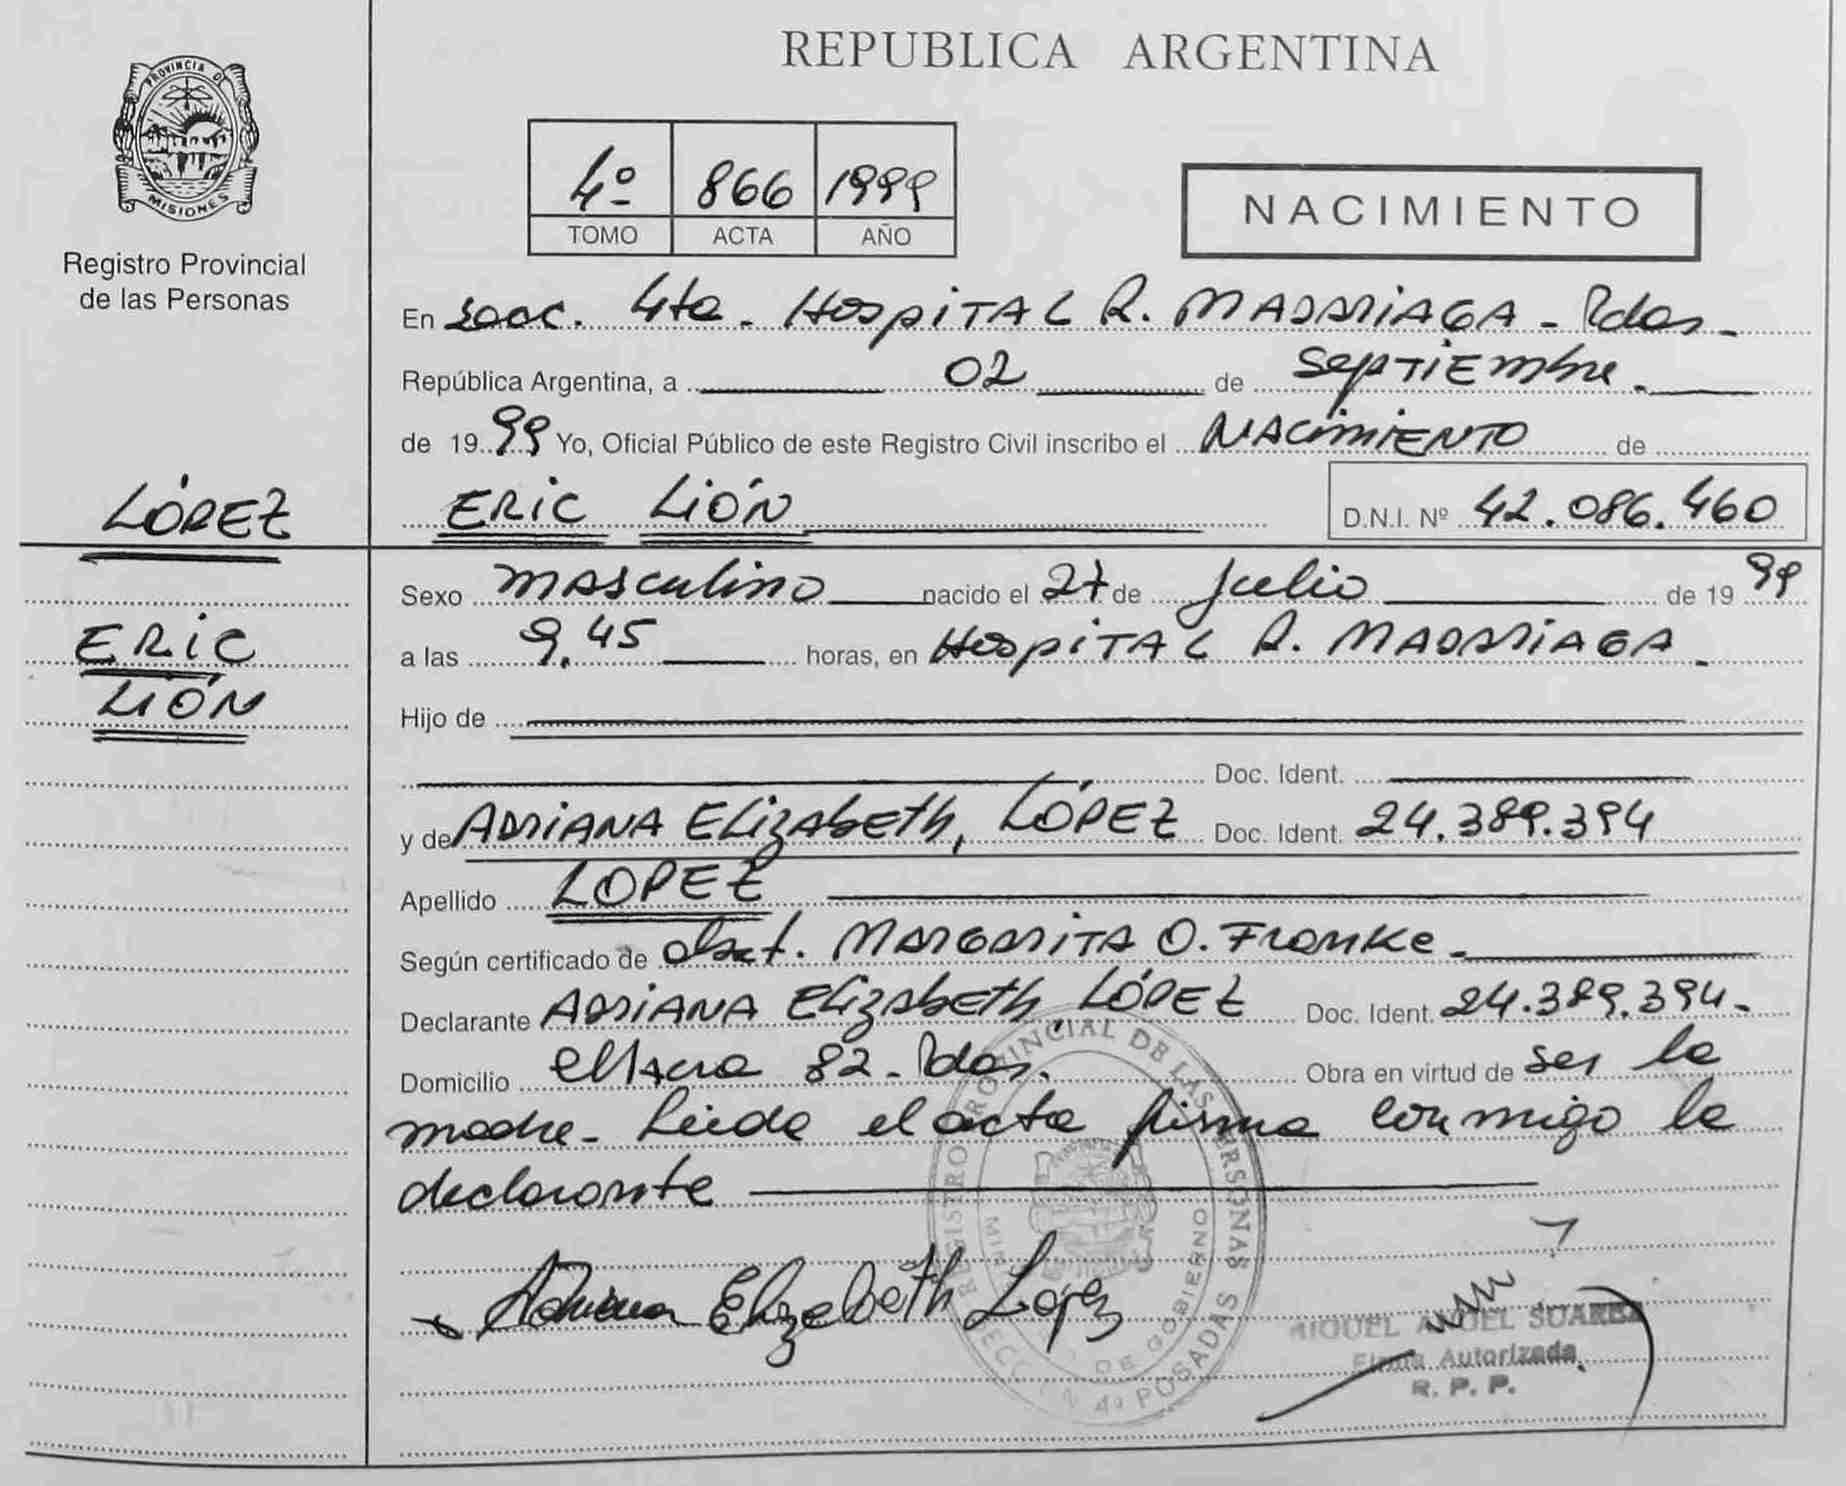 REPUBLICA ARGENTINA
PROVINCIA DE
MISIONES
Registro Provincial
de las Personas
4º 866 1999
TOMO ACTA AÑO
NACIMIENTO
En Secc. 4ta. Hospital R. MADARIAGA - Pdas -
República Argentina, a 02 de Septiembre.
de 1999 Yo, Oficial Público de este Registro Civil inscribo el NACIMIENTO de
LÓPEZ
ERIC LIÓN D.N.I. Nº 42.086.460
Sexo masculino nacido el 27 de Julio de 1999
ERIC
LIÓN
a las 9,45 horas, en Hospital R. MADARIAGA.
Hijo de
Doc. Ident.
y de ADRIANA ELizabeth, LÓPEZ Doc. Ident. 24.389.394
Apellido LOPEZ
Según certificado de Obst. MARGARITA O. Franke.
Declarante ADRIANA ELizabeth, LÓPEZ Doc. Ident. 24.389.394.
Domicilio 82 - Pdas. Obra en virtud de ser la
madre - Leída el acta firma conmigo la
declarante
Adriana Elizabeth Lopez
REGISTRO PROVINCIAL DE LAS PERSONAS
DE GOBIERNO
4º POSADAS
MIGUEL ANGEL SUAREZ
Firma Autorizada
R. P. P.